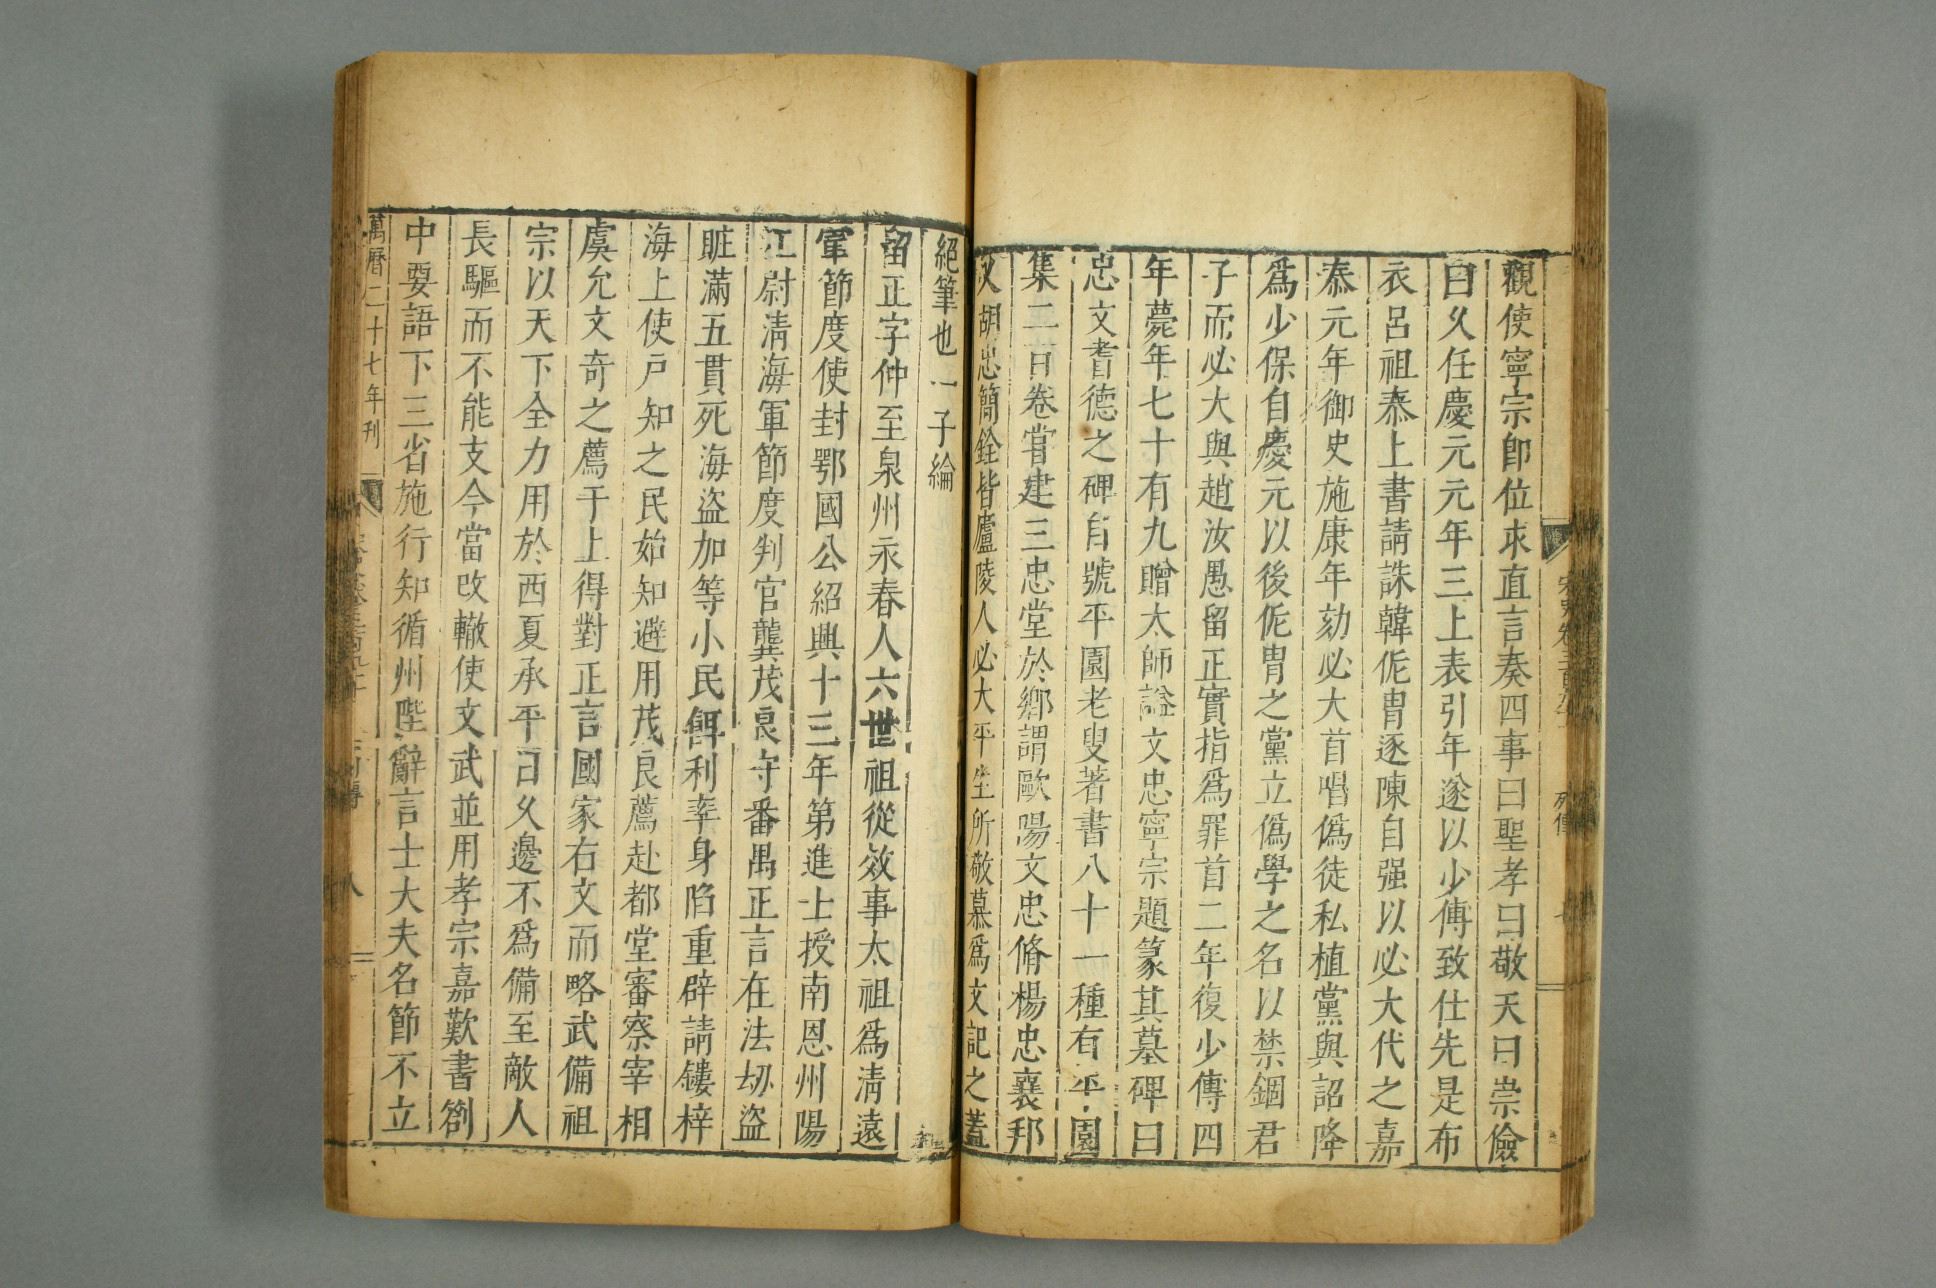 觀使寧宗即位求直言奏四事曰聖孝曰敬天曰崇儉
曰久任慶元元年三上表引年遂以少傅致仕先是布
衣呂祖泰上書請誅韓侂胄逐陳自强以必大代之嘉
泰元年御史施康年劾必大首唱僞徒私植黨與詔降
爲少保自慶元以後侂胄之黨立僞學之名以禁錮君
子而必大與趙汝愚留正實指爲罪首二年復少傅四
年薨年七十有九贈太師諡文忠寧宗題篆其墓碑曰
忠文耆德之碑自號平園老叟著書八十一種有平園
集二百卷嘗建三忠堂於鄉謂歐陽文忠脩楊忠襄邦
乂胡忠簡銓皆廬陵人必大平生所敬慕爲文記之蓋
絕筆也一子綸
留正字仲至泉州永春人六世祖從效事太祖爲清遠
軍節度使封鄂國公紹興十三年第進士授南恩州陽
江尉清海軍節度判官龔茂良守番禺正言在法刼盜
賍滿五貫死海盜加等小民餌利率身陷重辟請鏤梓
海上使戸知之民始知避用茂良薦赴都堂審察宰相
虞允文奇之薦于上得對正言國家右文而略武備祖
宗以天下全力用於西夏承平日久邊不爲備至敵人
長驅而不能支今當改轍使文武並用孝宗嘉歎書劄
中要語下三省施行知循州陛辭言士大夫名節不立
萬曆二十七年刊
列傳
八